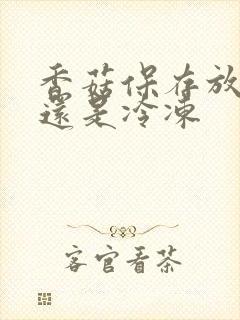 香菇保存放
還是冷凍
客官看茶